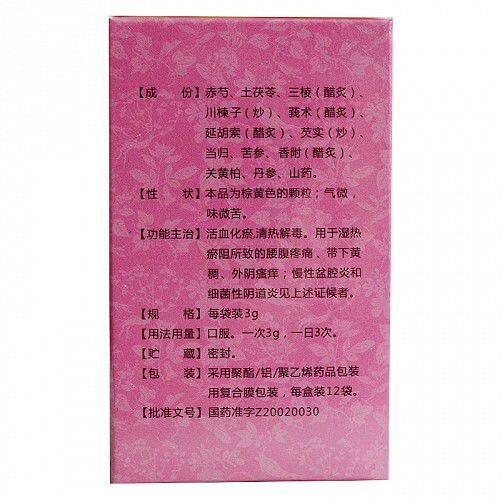 【成 份】赤芍、土茯苓、三棱(醋炙)、
川楝子(炒)、莪术(醋炙)、
延胡索(醋炙)、芡实(炒)、
当归、苦参、香附(醋炙)、
关黄柏、丹参、山药。
【性 状】本品为棕黄色的颗粒;气微,
味微苦。
【功能主治】活血化瘀,清热解毒。用于湿热
瘀阻所致的腰腹疼痛、带下黄
稠、外阴瘙痒;慢性盆腔炎和
细菌性阴道炎见上述证候者。
【规 格】每袋装3g
【用法用量】口服。一次3g,一日3次。
【贮 藏】密封。
【包 装】采用聚酯/铝/聚乙烯药品包装
用复合膜包装,每盒装12袋。
【批准文号】国药准字Z20020030